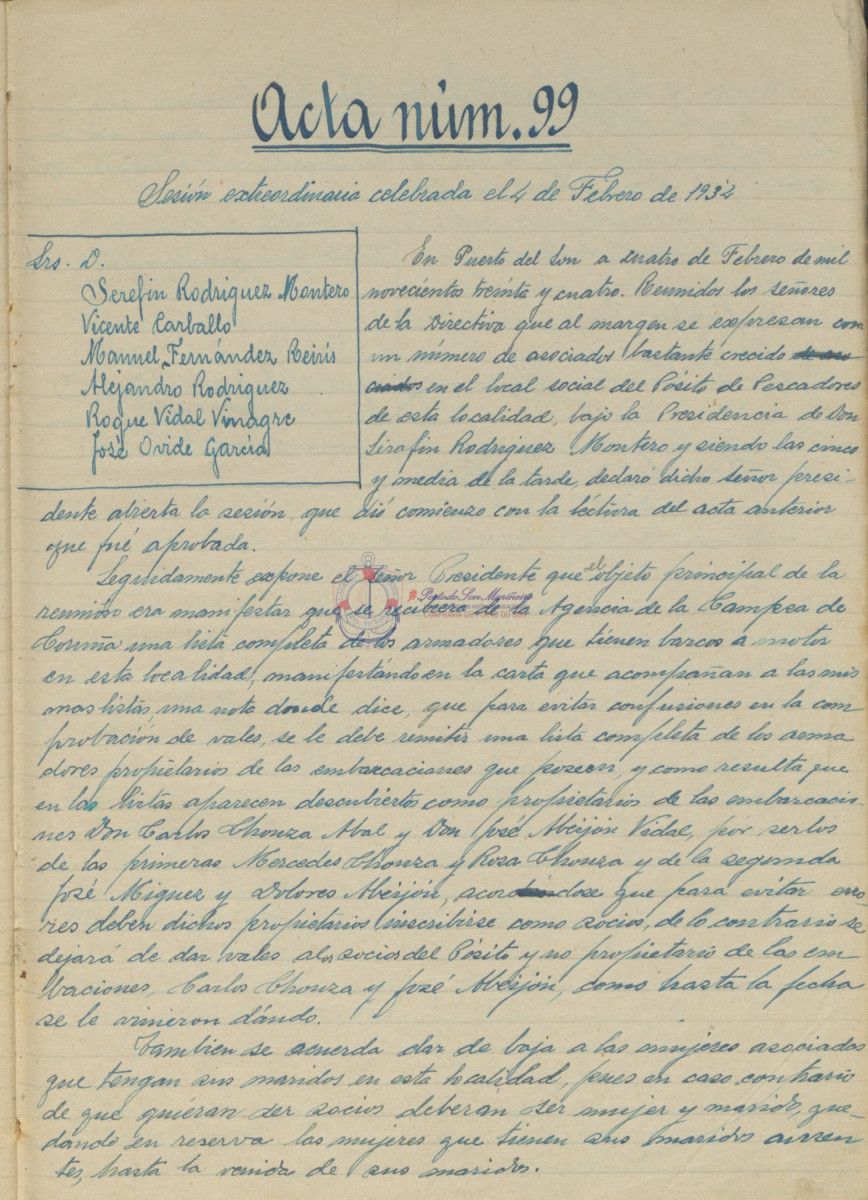 Acta núm. 99
Sesión extreordinaria celebrada el 4 de Febrero de 1934
Srs. D.
Serefin Rodriguez Montero
Vicente Carballo
Manuel Fernández Reirís
Alejandro Rodriguez
Roque Vidal Vinagre
José Ovide García
En Puerto del Son a cuatro de Febrero de mil
novecientos treinta y cuatro. Reunidos los señores
de la Directiva que al margen se expresan con
un número de asociados bastante crecido
en el local social del Pósito de Pescadores
de esta localidad, bajo la Presidencia de Don
Serafin Rodriguez Montero y siendo las cinco
y media de la tarde, declaró dicho señor presi-
dente abierta la sesión que dió comienzo con la léctura del acta anterior
que fué aprobada.
Seguidamente expone el señor Presidente que el objeto principal de la
reunión era manifestar que se recibiera de la Agencia de la Campsa de
Coruña una lista completa de los armadores que tienen barcos a motor
en esta localidad, manifestándo en la carta que acompañan a las mis
mas listas, una nota donde dice, que para evitar confusiones en la com
probación de vales, se le debe remitir una lista completa de los arma
dores propietarios de las embarcaciones que poseen, y como resulta que
en las listas aparecen descubiertos como propietarios de las embarcacio-
nes Don Carlos Chonza Abal y Don José Abeijón Vidal, por serlos
de las primeras Mercedes Chonza y Rosa Chonza y de la segunda
José Miguez y Dolores Abeijón, acordándose que para evitar erro
res deben dichos propietarios inscribirse como socios, de lo contrario se
dejará de dar vales a los socios del Pósito y no propietario de las em-
baciones, Carlos Chonza y José Abeijón, como hasta la fecha
se le vinieron dándo.
Tambien se acuerda dar de baja a las mujeres asociadas
que tengan sus maridos en esta localidad, pues en caso contrario
de que quieran ser socios deberan ser mujer y marido, que-
dando en reserva las mujeres que tienen sus maridos ausen-
tes, hasta la venida de sus maridos.
#PortodoSonMariñeiro